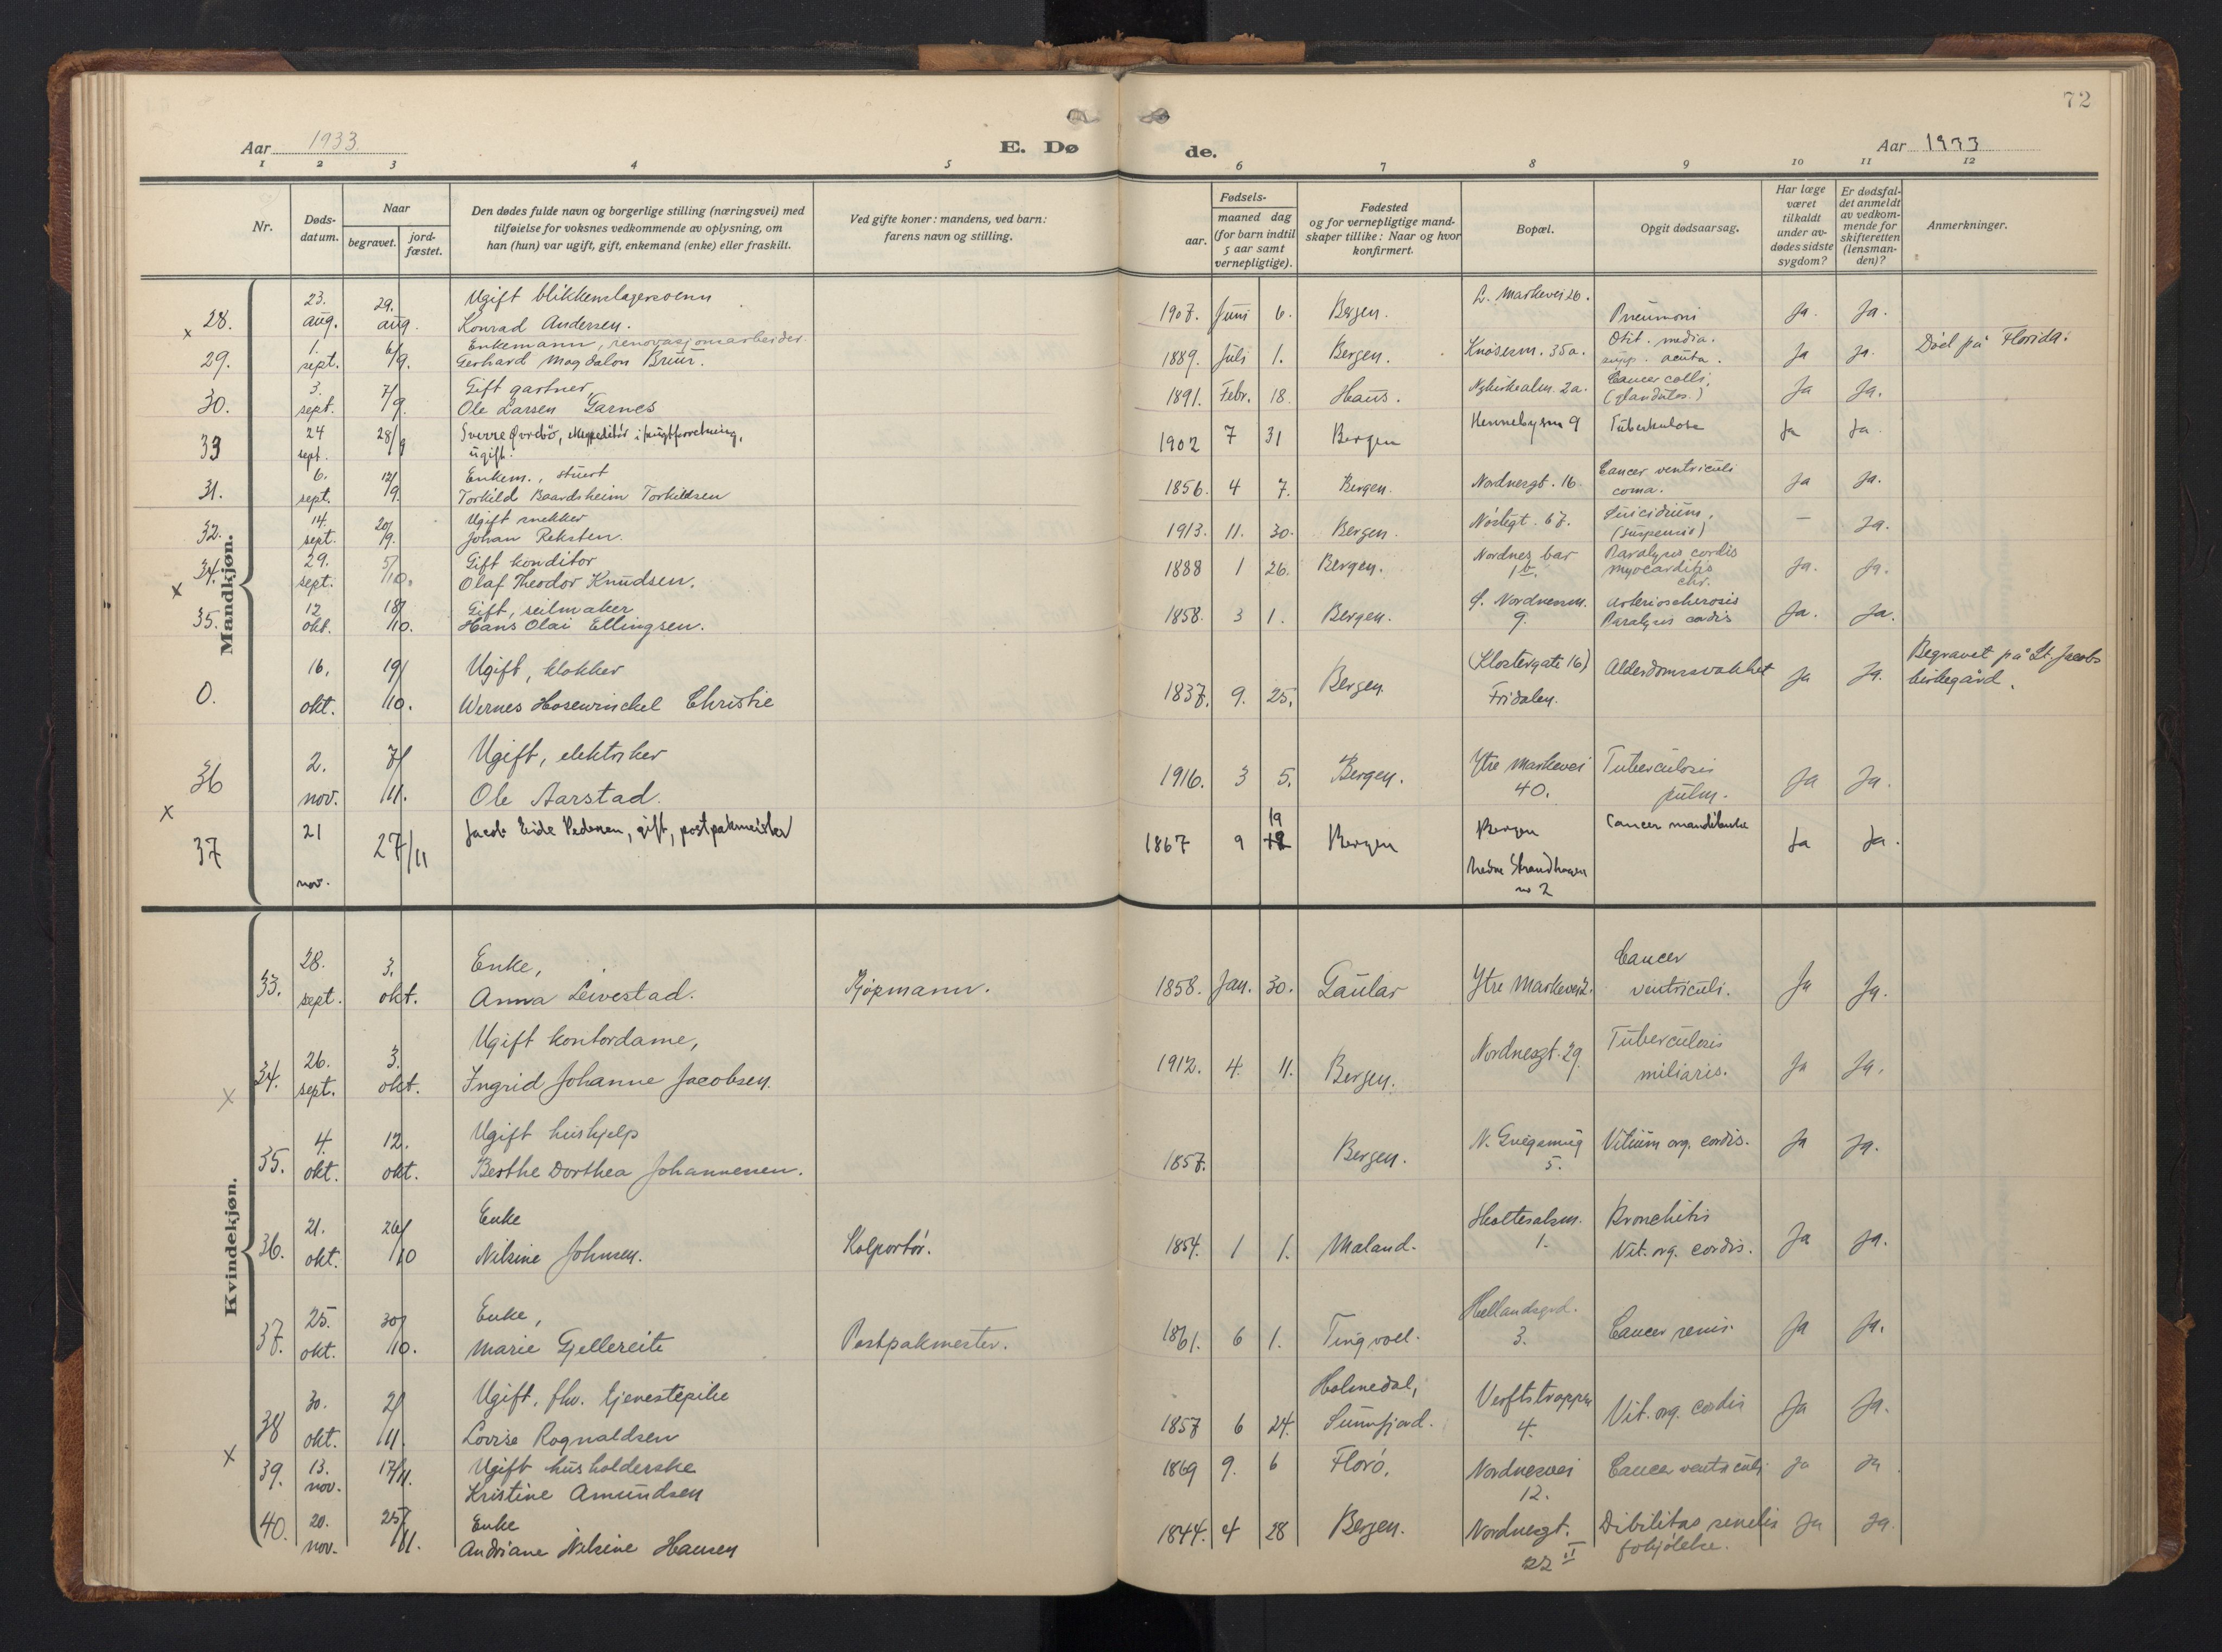 72
Aar 1933
E. Dø
de.
Aar 1933
1 2 3 4 5 6 7 8 9 10 11 12
Nr.
Døds-
datum.
Naar
begravet.
jord-
fæstet.
Den dødes fulde navn og borgerlige stilling (næringsvei) med
tilføielse for voksnes vedkommende av oplysning, om
han (hun) var ugift, gift, enkemand (enke) eller fraskilt.
Ved gifte koner: mandens, ved barn:
farens navn og stilling.
Fødsels-
aar.
maaned dag
(for barn indtil
5 aar samt
vernepligtige).
Fødested
og for vernepligtige mand-
skaper tillike: Naar og hvor
konfirmert.
Bopæl.
Opgit dødsaarsag.
Har læge
været
tilkaldt
under av-
dødes sidste
sygdom?
Er dødsfal-
det anmeldt
av vedkom-
mende for
skifteretten
(lensman-
den)?
Anmerkninger.
Mandkjøn.
23. 29. Ugift blikkenslagersvenn L. Markevei 26.
x 28. aug. aug. Konrad Andersen. 1907. Juni 6. Bergen. Pneumoni Ja. Ja.
1. 6/9. Enkemann, renovasjonsarbeider. Otit. media.
29. sept. Gerhard Magdalon Bruur. 1889. Juli 1. Bergen. Knøsesm. 35a. supp. acuta. Ja Ja. Død på Florida.
3. 7/9 Gift gartner, Cancer colli,
30. sept. Ole Larsen Garnes 1891. Febr. 18. Haus. Nykirkealm. 2a. (glandulos.) Ja Ja.
24 28/9 Sverre Øvrebø, ekspeditør i fruktforretning,
33 sept. ugift. 1902 7 31 Bergen Hennebysm 9 Tuberkulose Ja Ja.
6. 12/9. Enkem., stuert Cancer ventriculi
31. sept. Torkild Baardsheim Torkildsen 1856. 4 7. Bergen. Nordnesgt. 16 coma. Ja Ja.
14. 20/9. Ugift snekker Suicidium,
32. sept. Johan Reksten. 1913. 11. 30. Bergen. Nøstegt. 67. (suspensio) — Ja.
29. 5/10. Gift konditor Nordnes bar Paralysis cordis
x 34. sept. Olaf Theodor Knudsen. 1888 1 26. Bergen. myocarditis Ja. Ja.
chr.
12 18/10. Gift, seilmaker Arteriosclerosis
35. okt. Hans Olai Ellingsen. 1858. 3 1. Bergen. 9. Paralysis cordis Ja. Ja.
16. 19/10. Ugift, klokker (Klostergate 16) Alderdomssvakhet Begravet på St. Jacobs
0. okt. Werner Hosewinckel Christie 1837. 9. 25. Bergen. Fridalen. Ja Ja. kirkegård.
2. 7/11. Ugift, elektriker Ytre Markevei Tuberculosis
36 nov. Ole Aarstad. 1916. 3 5. Bergen. 40. pulm. Ja Ja.
x
21 27/11 Jacob Eide Pedersen, gift, postpakmester 19 Bergen Cancer mandibula
37 nov. 1867 9 Bergen Nedre Strandhagen Ja Ja.
no 2
Kvindekjøn.
28. 3. Enke, Cancer
33. sept. okt. Anna Leivestad. Kjøpmann. 1858. Jan. 30. Gaular Ytre Markevei 2. ventriculi. Ja Ja.
26. 3. Ugift kontordame, Tuberculosis
x 34. sept. okt. Ingrid Johanne Jacobsen. 1912. 4. 11. Bergen. Nordnesgt. 29. miliaris. Ja Ja.
4. 12. Ugift hushjelp N. Griegsmug Vitium org. cordis.
35. okt. okt. Berthe Dorthea Johannesen. 1857. Bergen. 5. Ja Ja.
21. 26/10 Enke Holtesalm. Bronchitis
36. okt. Nilsine Johnsen. Kolportør. 1854. 1 1. Maland. 1. Vit. org. cordis. Ja Ja.
25. 30/10. Enke, Hellandsgrd.
37. okt. Marie Gjellereite Postpakmester. 1861. 6 1. Tingvoll. 3. Cancer renis. Ja Ja.
30. 2/11. Ugift, fhv. tjenestepike Holmedal, Verftstrappen
38 okt. Lovise Rognaldsen 1857 6 24. Sunnfjord. 4. Vit. org. cordis Ja Ja.
x
13. 17/11. Ugift husholderske
39. nov. Kristine Amundsen 1869 9. 6 Florø. Nordnesvei 12. Cancer ventriculi Ja Ja
20. 25/11. Enke
40. nov. Andriane Nilsine Hansen 1844. 4 28 Bergen. Nordnesgt. 22 II Dibilitas senilis Ja Ja.
forkjølelse.